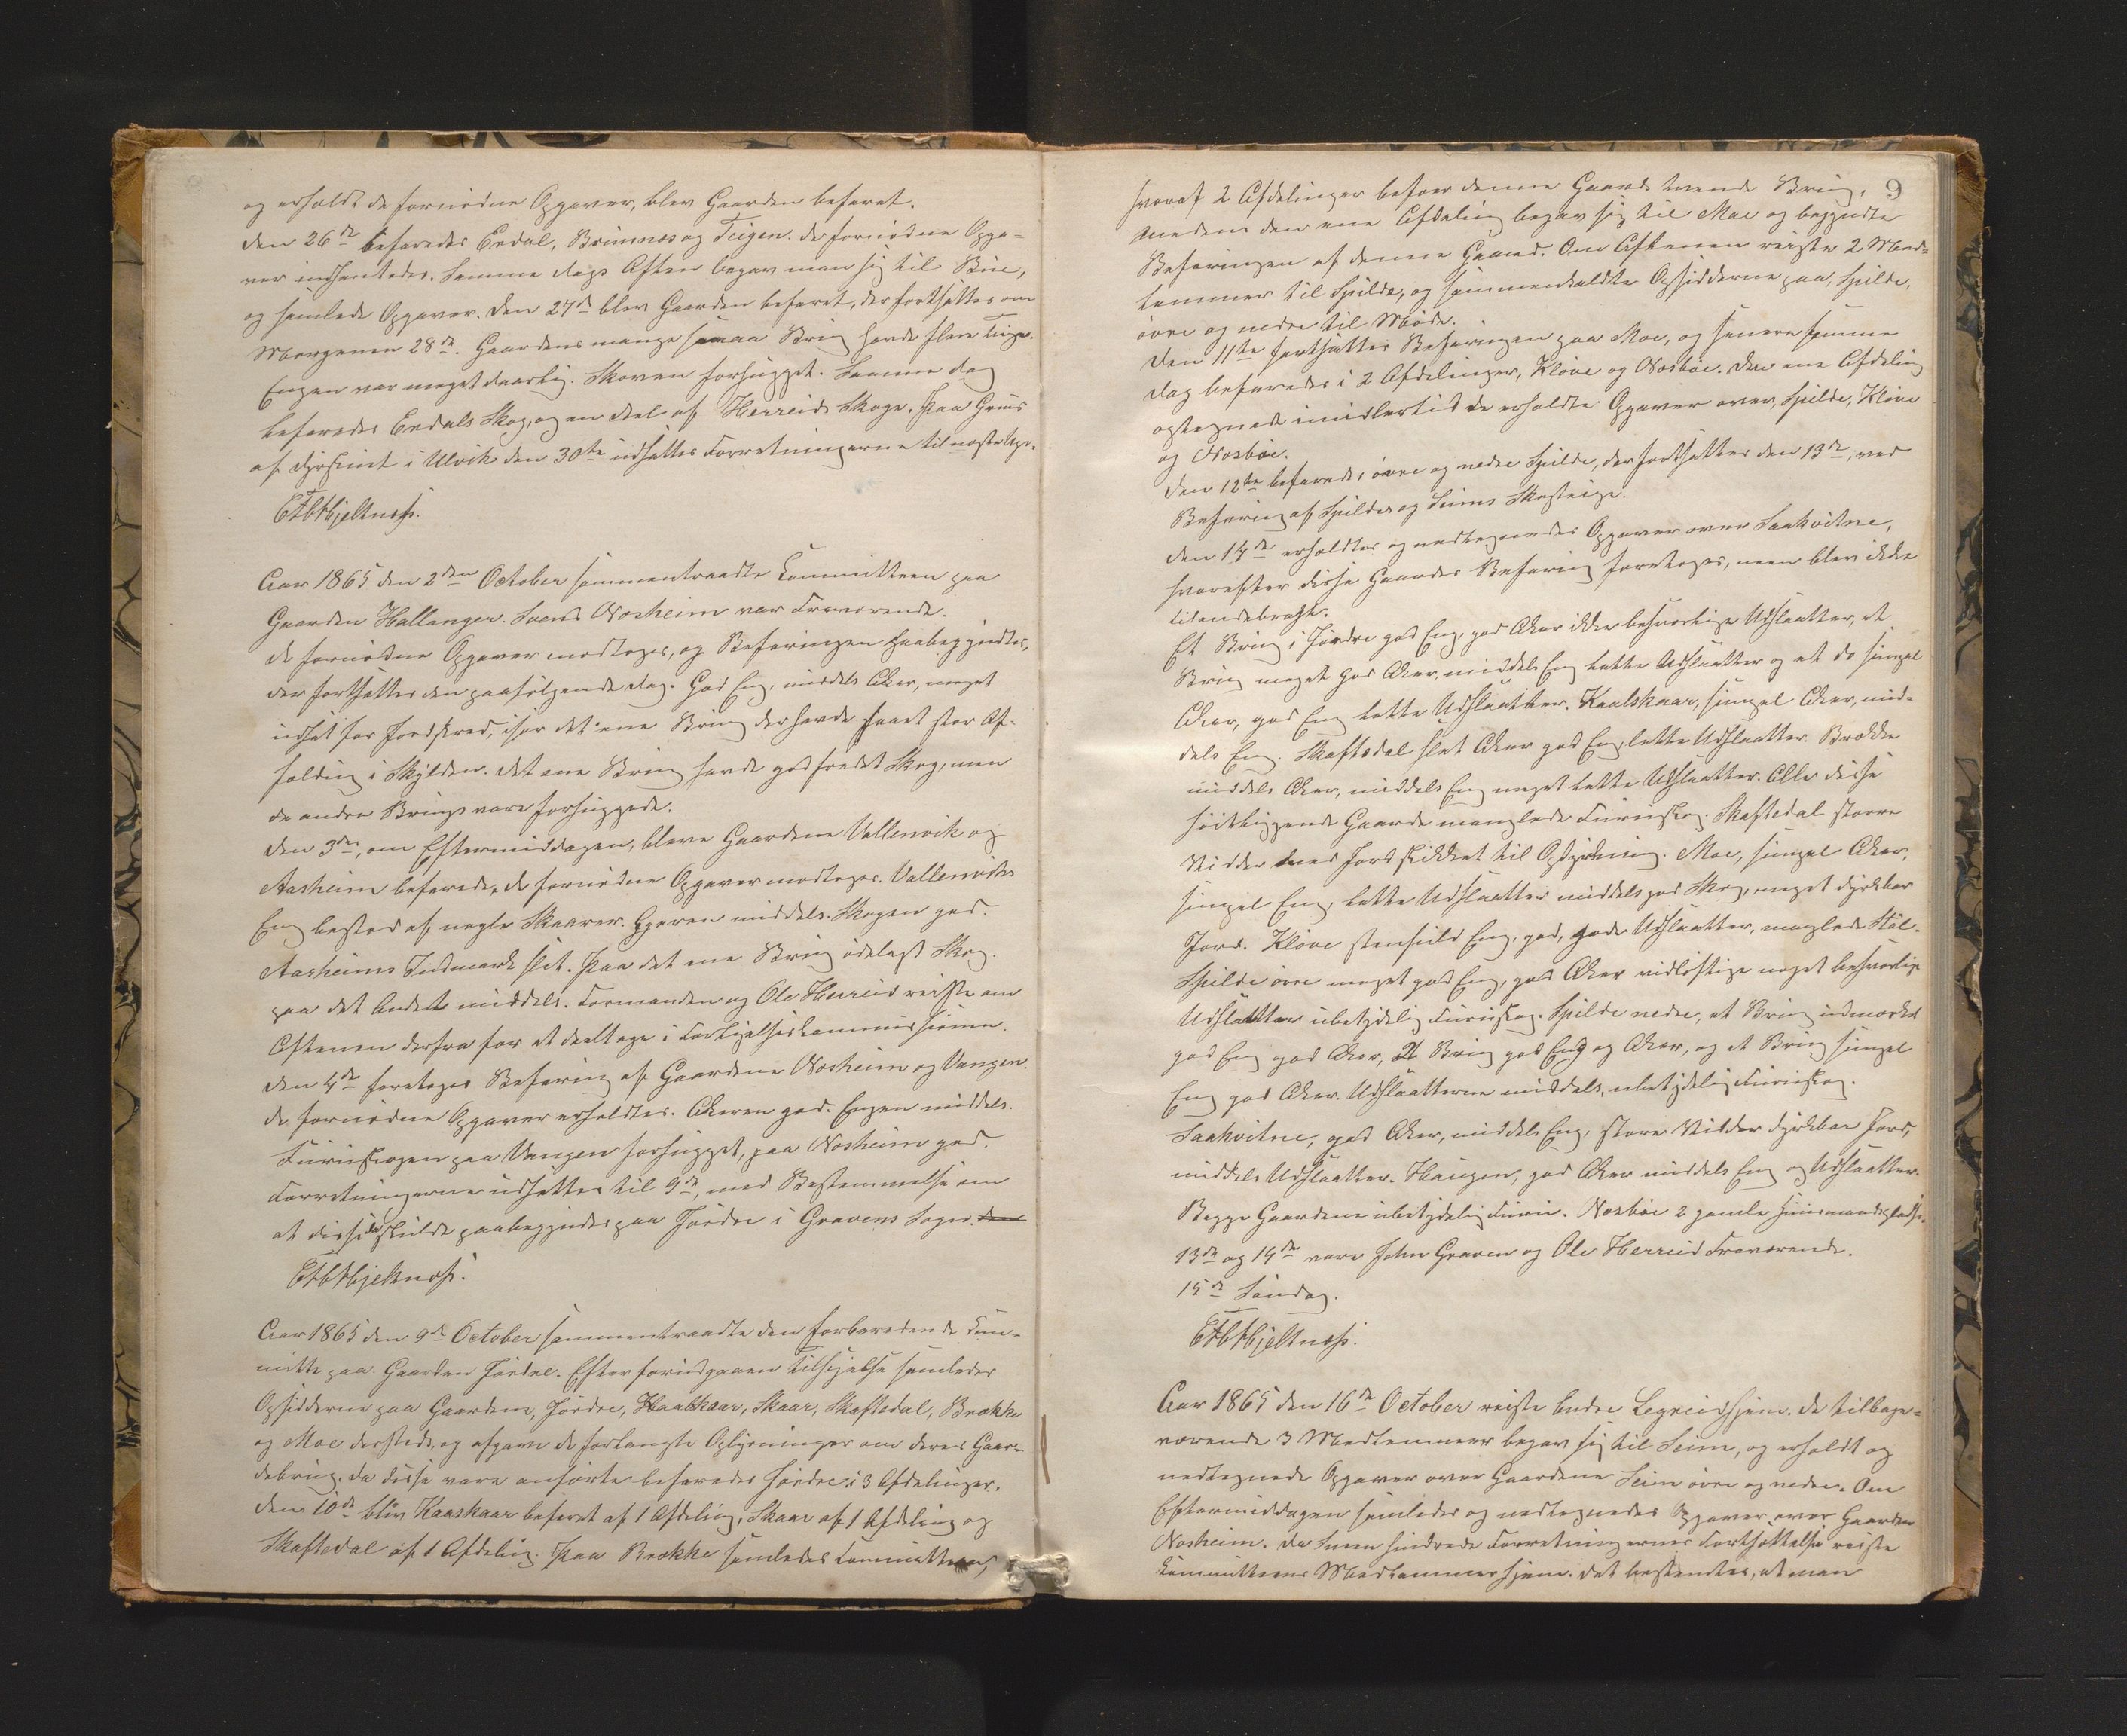 og erholdt de fornödne Opgaver, blev Gaarden befaret.
Den 26de befaredes Erdal, Brimnæs og Teigen. De fornödne Opga-
ver indhentedes. Samme Dags Aften begav man sig til Bue,
og samlede Opgaver. Den 27de blev Gaarden befaret, der fortsattes om
Morgenen 28de. Gaardens mange smaa Brug havde flere Teige.
Engen var meget daarlig. Skoven forhugget. Samme Dag
befaredes Erdals Skog, og en Deel af Herreids Skoge. Paa Grund
af Thinget i Ulvik den 30te udsattes Forretningerne til næste Uge.
Aar 1865 den 2den October sammentraadte Committeen paa
Gaarden Hallanger. Svend Nosheim var Fraværende.
De fornödne Opgaver modtoges, og Befaringen paabegyndtes,
der fortsattes den paafölgende Dag. God Eng, middels Aker, meget
udsat for Jordskred, især det ene Brug der havde faaet stor Af-
fælding i Skylden. Det ene Brug havde god fredet Skog, men
de andre Brugs vare forhuggede.
Den 3die, om Eftermiddagen, bleve Gaardene Vallenvik og
Aasheim befarede, de fornödne Opgaver modtoges. Vallenviks
Eng bestod af nogle Skaarer. Ageren middels. Skogen god.
Aasheims Indmark slet. Paa det ene Brug ödelagt Skog.
paa det Andet middels. Formanden og Ole Herreid reiste om
Aftenen derfra for at deeltage i Forligelseskommissionen.
Den 4de foretoges Befaring af Gaardene Nosheim og Vangen.
De fornödne Opgaver erholdtes. Akeren god. Engen middels.
Furuskogen paa Vangen forhugget, paa Nosheim god.
Forretningerne udsattes til 9de, med Bestemmelse om
at disse da skulde paabegyndes paa Jördre i Gravens Sogn.
Aar 1865 den 9de October sammentraadte den forberedende Com-
mitte paa Gaarden Jördre. Efter forudgaaen Tilsigelse samledes
Opsidderne paa Gaardene, Jördre, Kaalskaar, Skaar, Skaftedal, Brække
og Moe dersteds, og afgave de forlangte Oplysninger om deres Gaar-
debrug. Da disse vare anförte befaredes Jördre i 3 Afdelinger.
Den 10de blev Kaaskaar befaret af 1 Afdeling, Skaar af 1 Afdeling og
Skaftedal af 1 Afdeling. Paa Brække samledes Committeen,
9
hvoraf 2 Afdelinger befoer denne Gaards tvende Brug,
medens den ene Afdeling begav sig til Moe og begyndte
Befaringen af denne Gaard. Om Aftenen reiste 2 Med-
lemmer til Spilde, og sammenkaldte Opsidderne paa, Spilde,
övre og nedre til Möde.
Den 11te fortsattes Befaringen paa Moe, og senere samme
Dag befaredes i 2 Afdelinger, Klöve og Nosböe. Den ene Afdeling
optegnede imidlertid de erholdte Opgaver over, Spilde, Klöve
og Nosböe.
Den 12te befaredes övre og nedre Spilde, der fortsattes den 13de, med
Befaring af Spildes og Seims Skogteige.
Den 14de erholdtes og nedtegnedes Opgaver over Saakvitne,
hvorefter disse Gaardes Befaring foretoges, men blev ikke
tilendebragte.
Et Brug i Jördre god Eng, god Aker ikke besværlige Udslaatter, et
Brug meget god Aker, middels Eng lette Udslaatter og et do simpel
Aker, god Eng lette Udslaatter. Kaalskaar, simpel Aker, mid-
dels Eng. Skaftedal slet Aker god Eng, lette Udslaatter. Brække
middels Aker, middels Eng meget lette Udslaatter. Alle disse
höitliggende Gaarde manglede Furuskog. Skaftedal större
Vidder med Jord skikket til Opdyrkning. Moe, simpel Aker,
simpel Eng, lette Udslaatter middels god Skog, meget dyrkbar
Jord. Klöve stenfuld Eng, god, gode Udslaatter, manglede Stöl.
Spilde övre meget god Eng, god Aker vidlöftige meget besværlige
Udslaatter ubetydelig Furuskog. Spilde nedre, et Brug udmærket
god Eng god Aker, 2t Brug god Eng og Aker, og et Brug simpel
Eng god Aker. Udslaatterne middels, ubetydelig Furuskog.
Saakvitne, god Aker, middels Eng, store Vidder dyrkbar Jord,
middels Udslaatter. Haugen, god Aker middels Eng og Udslaatter.
Begge Gaardene ubetydelig Furu. Nosböe 2 gamle Huusmandspladse.
13de og 14de vare John Graven og Ole Herreid Fraværende.
15de Söndag.
Aar 1865 den 16de October reiste Endre Legreid hjem. De tilbage-
værende 3 Medlemmer begav sig til Seim, og erholdt og
nedtegnede Opgaver over Gaardene Seim övre og nedre. Om
Eftermiddagen samledes og nedtegnedes Opgaver over Gaarden
Nosheim. Da Sneen hindrede Forretningernes Fortsættelse reiste
Committeens Medlemmer hjem. Det bestemtes, at man